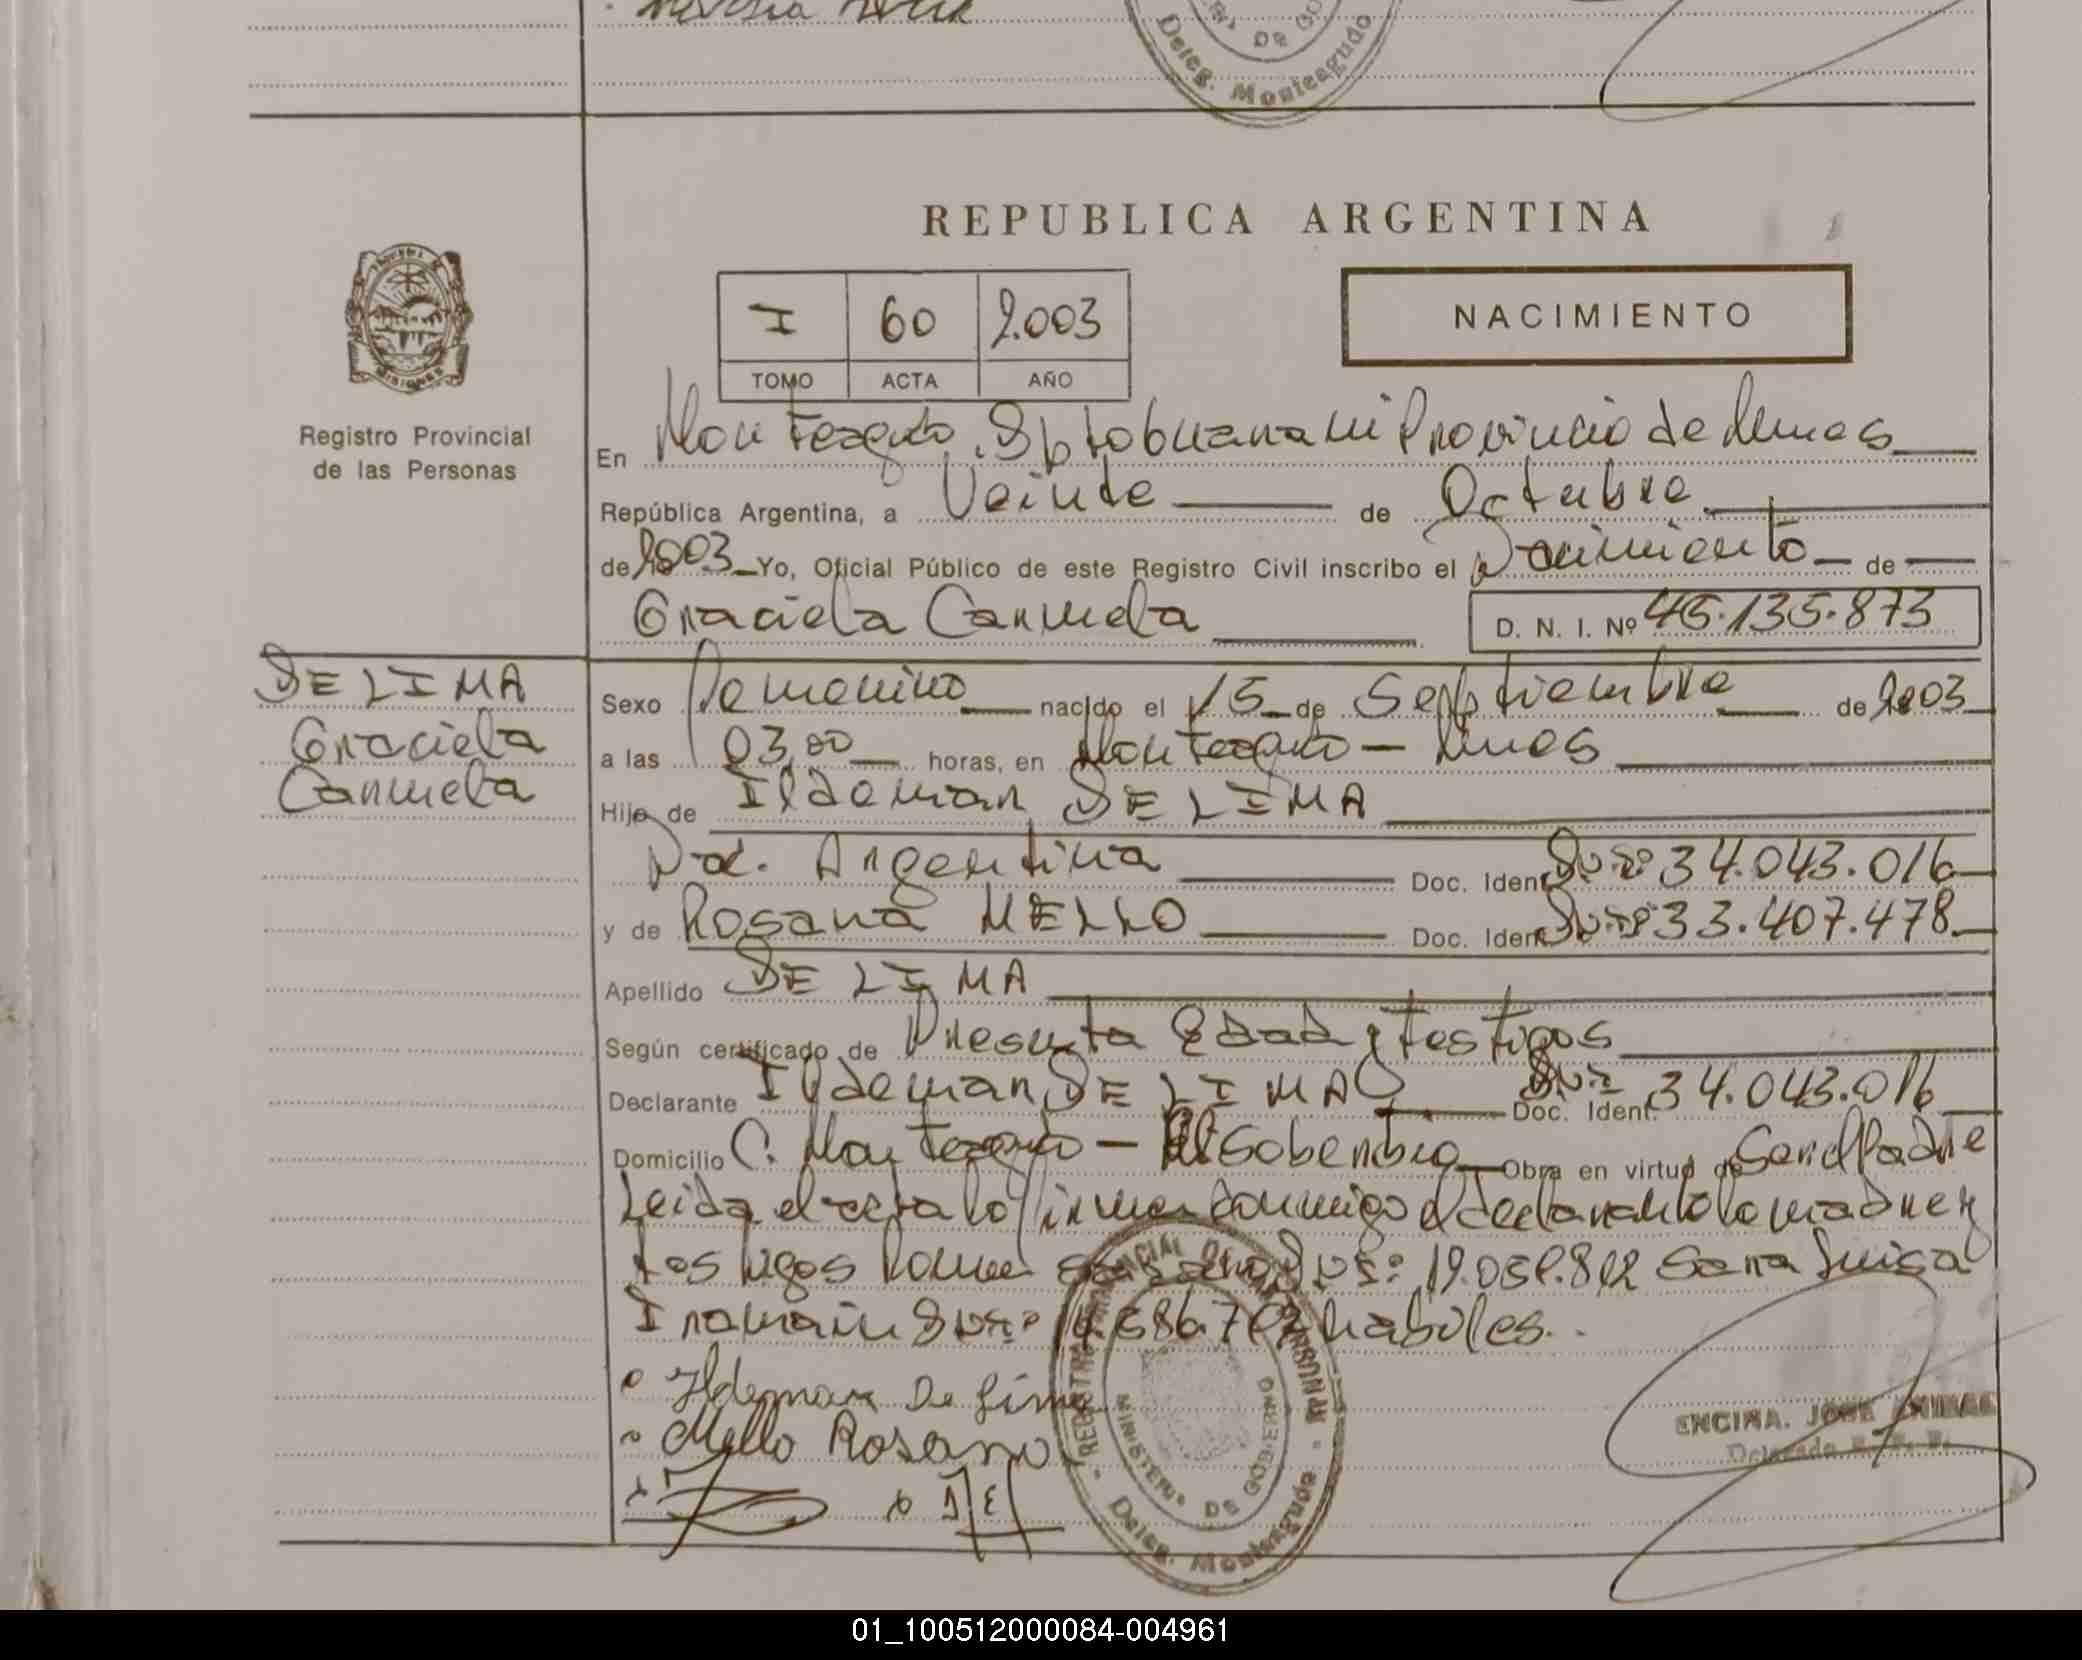 Deleg. Monteagudo
REPUBLICA ARGENTINA
I 60 2.003
TOMO ACTA AÑO
NACIMIENTO
MISIONES
Registro Provincial
de las Personas
En Monteagudo, Dpto Guaraní Provincia de Mnes
República Argentina, a Veinte de Octubre
de 2003 Yo, Oficial Público de este Registro Civil inscribo el Nacimiento de
Graciela Carmela D. N. I. Nº 45.135.873
DE LIMA
Graciela
Carmela
Sexo Femenino nacido el 15 de Septiembre de 2003
a las 03,00 horas, en Monteagudo - Mnes
Hijo de Ildemar DE LIMA
Na. Argentina Doc. Ident. Dni nº 34.043.016
y de Rosana MELLO Doc. Ident. Dni nº 33.407.478
Apellido DE LIMA
Según certificado de Presunta Edad y testigos
Declarante Ildemar DE LIMA Doc. Ident. 34.043.016
Domicilio C. Monteagudo - El Soberbio Obra en virtud de Ser el Padre
Leida el acta lo firman conmigo el declarante la madre y
testigos 19.051.812 Sara Luisa
habiles.
Ildemar De Lima
Mello Rosana
REGISTRO PROVINCIAL DE LAS PERSONAS
MINISTERIO DE GOBIERNO
Deleg. Monteagudo
ENCINA. JOSE ANIBAL
Delegado R. P. P.
01_100512000084-004961